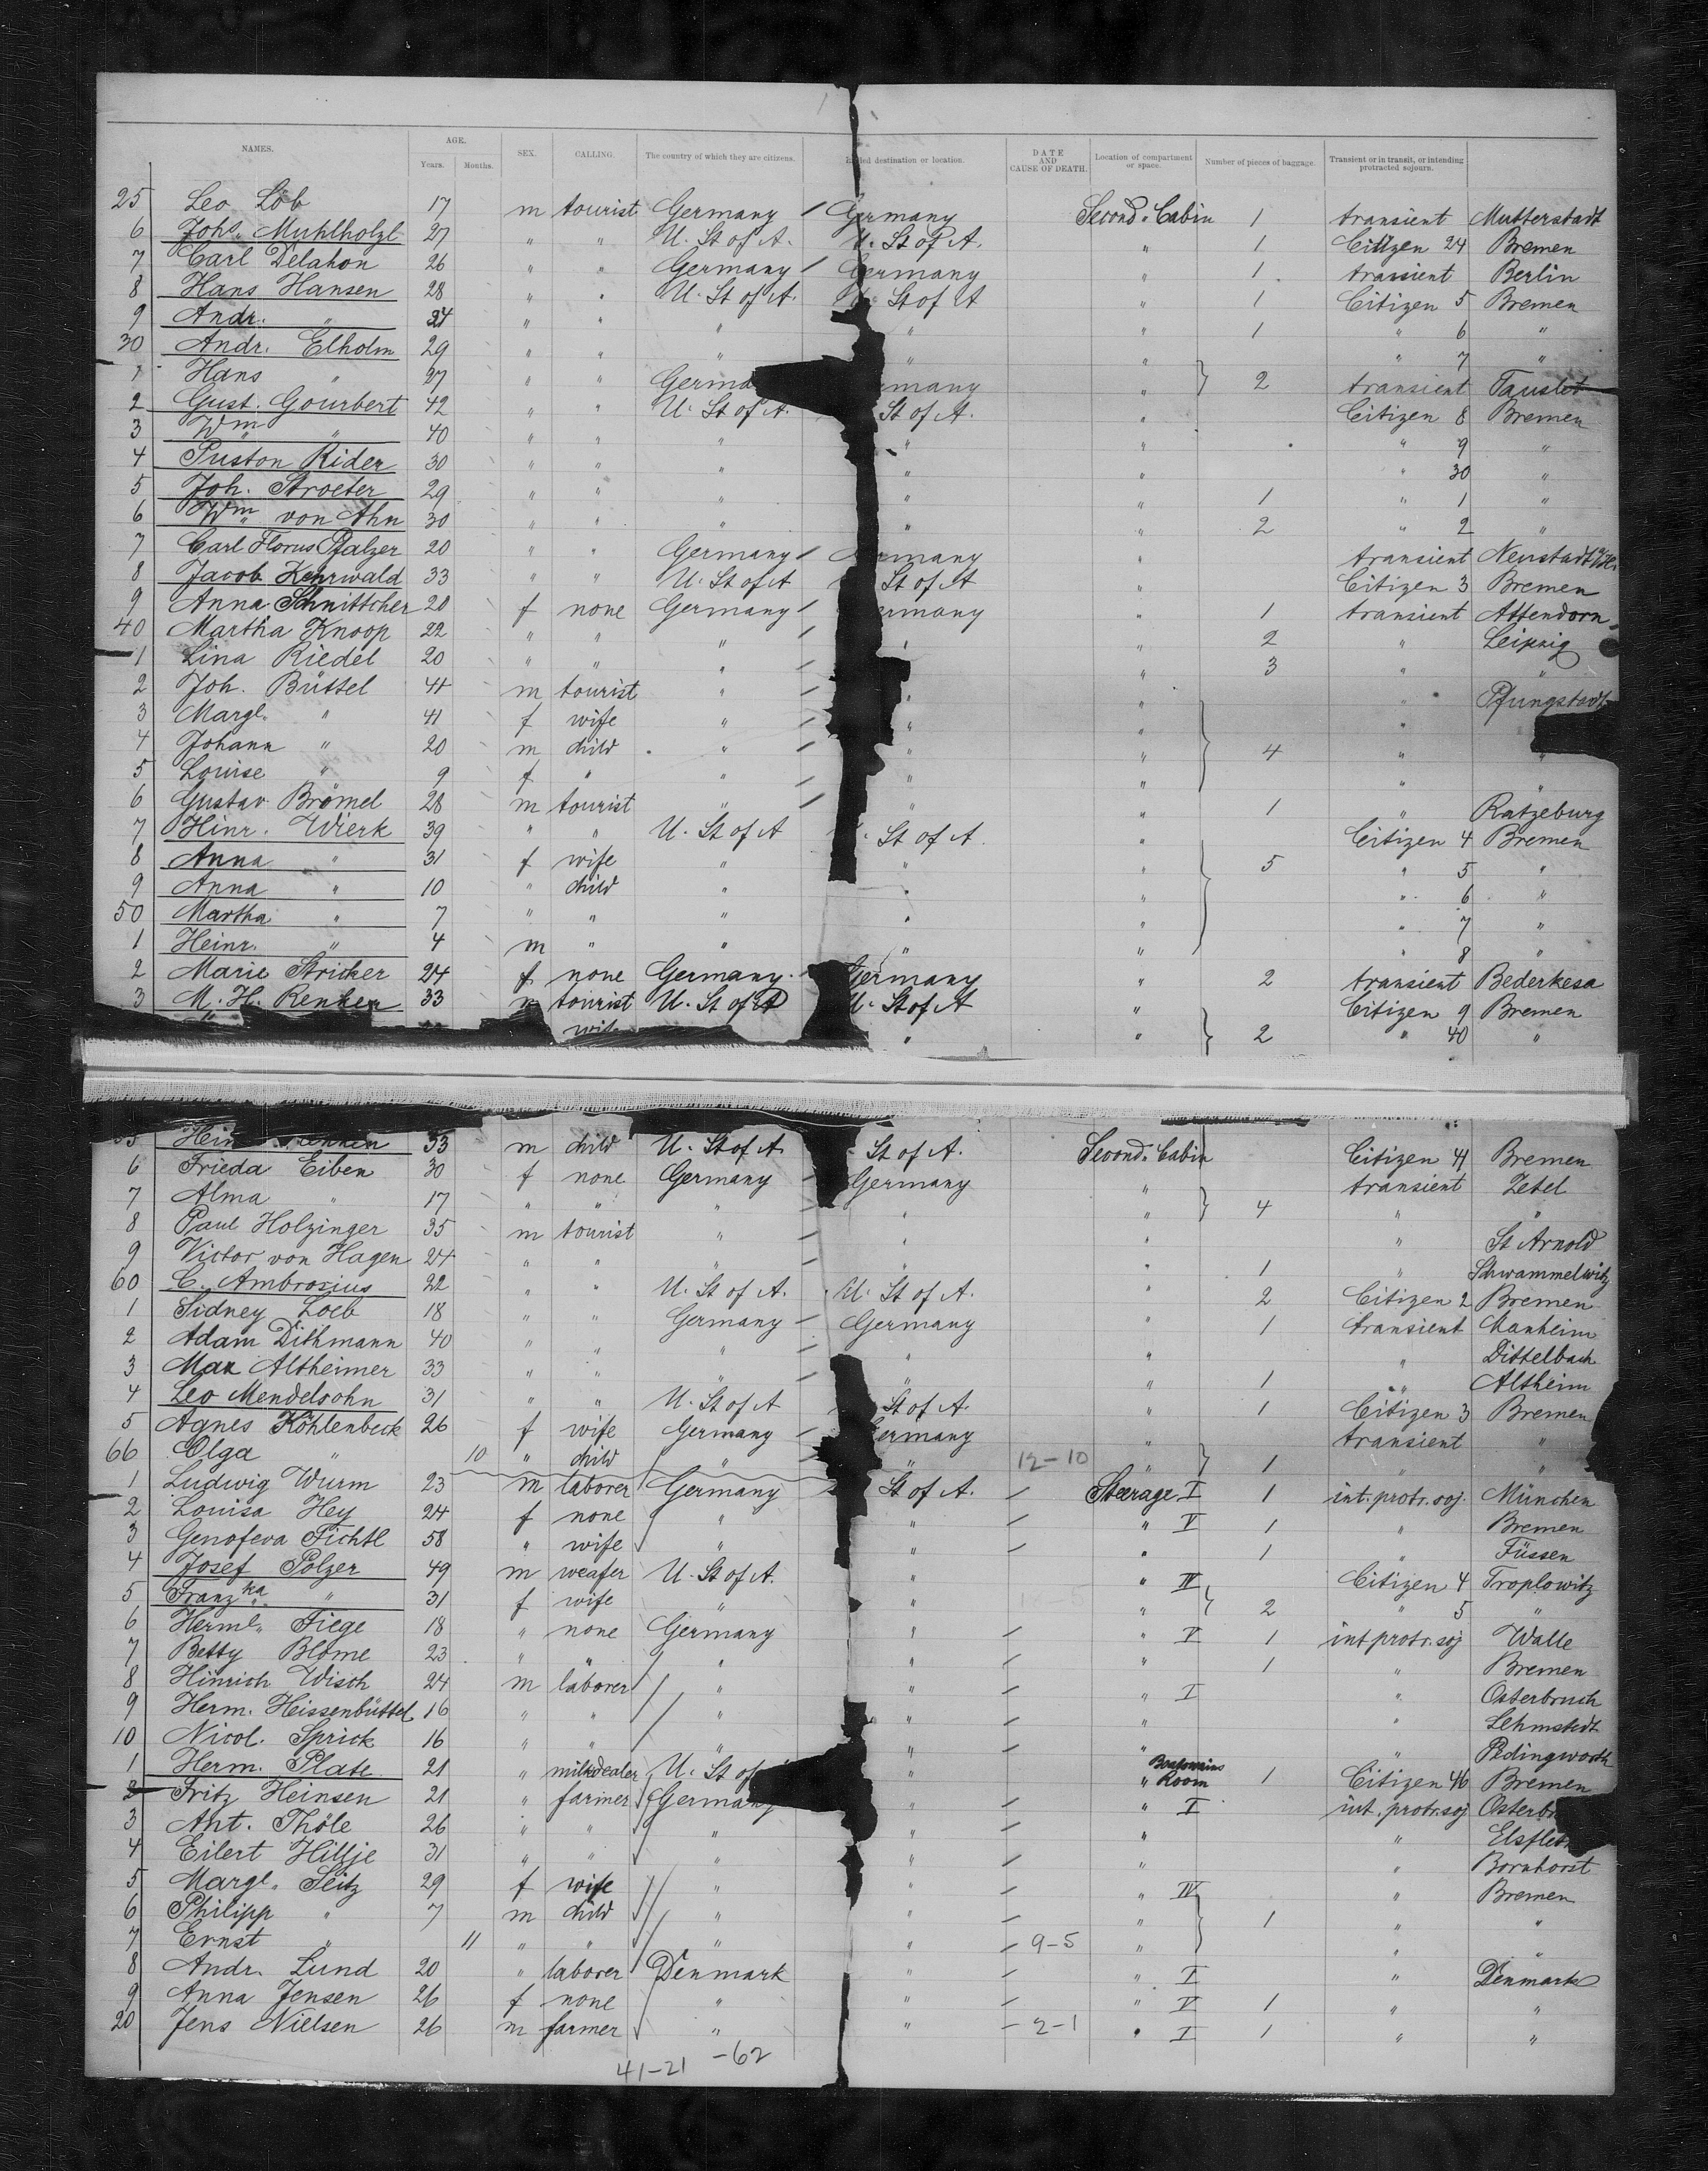 NAMES. AGE. Years. Months. SEX. CALLING. The country of which they are citizens. destination or location. DATE AND CAUSE OF DEATH. Location of compartment or space. Number of pieces of baggage. Transient or in transit, or intending protracted sojourn.
25 Leo Löb 17 m tourist Germany / Germany Second Cabin 1 transient Mutterstadt
6 Johs. Muhlholzl 27 " " U. St of A. U. St of A. " 1 Citizen 24 Bremen
7 Carl Delahon 26 " " Germany / Germany " 1 transient Berlin
8 Hans Hansen 28 " " U. St of A. U. St of A " 1 Citizen 5 Bremen
9 Andr. " " " " " " 1 " 6 "
30 Andr. Elholm 29 " " " " " " 7 "
1 Hans " 27 " " Germa many " } 2 transient
2 Gust. Gourbert 42 " " U. St of A. St of A. " Citizen 8 Bremen
3 Wm " 40 " " " " " " 9 "
4 Puston Rider 30 " " " " " " 30 "
5 Joh. Stroeter 29 " " " " " 1 " 1 "
6 Wm von Ahn 30 " " " " " 2 " 2 "
7 Carl Florus Pfalzer 20 " " Germany / many " transient Neustadt
8 Jacob Kehrwald 33 " " U. St of A St of A " Citizen 3 Bremen
9 Anna Schnittcher 20 f none Germany / ermany " 1 transient Attendorn
40 Martha Knoop 22 " " " / " " 2 " Leipzig
1 Lina Riedel 20 " " " / " 3 " "
2 Joh. Büttel 41 m tourist " / " " " Pfungstadt
3 Margl. " 41 f wife " / " " "
4 Johann " 20 m child " / " " } 4 " "
5 Louise " 9 f " " / " " " "
6 Gustav Brömel 28 m tourist " / " " 1 " Ratzeburg
7 Hinr. Wierk 39 " " U. St of A St of A. " Citizen 4 Bremen
8 Anna " 31 f wife " " " } 5 " 5 "
9 Anna " 10 " child " " " " 6 "
50 Martha " 7 " " " " " " 7 "
1 Heinr. " 4 m " " " " " 8 "
2 Marie Stricker 24 f none Germany Germany " 2 transient Bederkesa
3 M. H. Renken 33 m tourist U. St of A U. St of A " Citizen 9 Bremen
wife " " } 2 " 40 "
55 Renken m child U. St of A. St of A. Second Cabin Citizen 41 Bremen
6 Frieda Eiben 30 f none Germany Germany " transient Zetel
7 Alma " 17 " " " " " } 4 " "
8 Paul Holzinger 35 m tourist " " " " St Arnold
9 Victor von Hagen 24 " " " " " 1 " Schwammelwitz
60 C. Ambrosius 22 " " U. St of A. U. St of A. " 2 Citizen 2 Bremen
1 Sidney Loeb 18 " " Germany Germany " 1 transient Manheim
2 Adam Dithmann 40 " " " " " " Dittelbach
3 Max Altheimer 33 " " " " " 1 " Altheim
4 Leo Mendelsohn 31 " " U. St of A St of A. " 1 Citizen 3 Bremen
5 Agnes Köhlenbeck 26 f wife Germany ermany " transient "
66 Olga " 10 " child " " 12-10 " } 1 " "
1 Ludwig Wurm 23 m laborer Germany St of A. / Steerage I 1 int. protr. soj. München
2 Louisa Hey 24 f none " " / " V 1 " Bremen
3 Genofeva Fichtl 58 " wife " " / " 1 " Füssen
4 Josef Polzer 49 m weafer U. St of A. " " IV Citizen 4 Troplowitz
5 Franzka " 31 f wife " " " } 2 " 5 "
6 Herml. Fiege 18 " none Germany " / " V 1 int protr. soj Walle
7 Betty Blome 23 " " " " / " 1 " Bremen
8 Hinrich Wisch 24 m laborer " " / " I " Osterbruch
9 Herm. Heissenbüttel 16 " " " " / " " Lehmstedt
10 Nicol. Sprick 16 " " " " / " " Pedingworth
1 Herm. Plate 21 " milkdealer U. St of " " Boatswains Room 1 Citizen 46 Bremen
2 Fritz Heinsen 21 " farmer Germany " / " I int. protr. soj
3 Ant. Thöle 26 " " " " / " "
4 Eilert Hillje 31 " " " " / " " Bornhorst
5 Margl. Seitz 29 f wife " " / " IV " Bremen
6 Philipp " 7 m child " " / " } 1 " "
7 Ernst " 11 " " " " / 9-5 " " "
8 Andr. Lund 20 " laborer Denmark " / " I " Denmark
9 Anna Jensen 26 f none " " / " V 1 " "
20 Jens Nielsen 26 m farmer " " - 2-1 " I 1 " "
41-21 -62